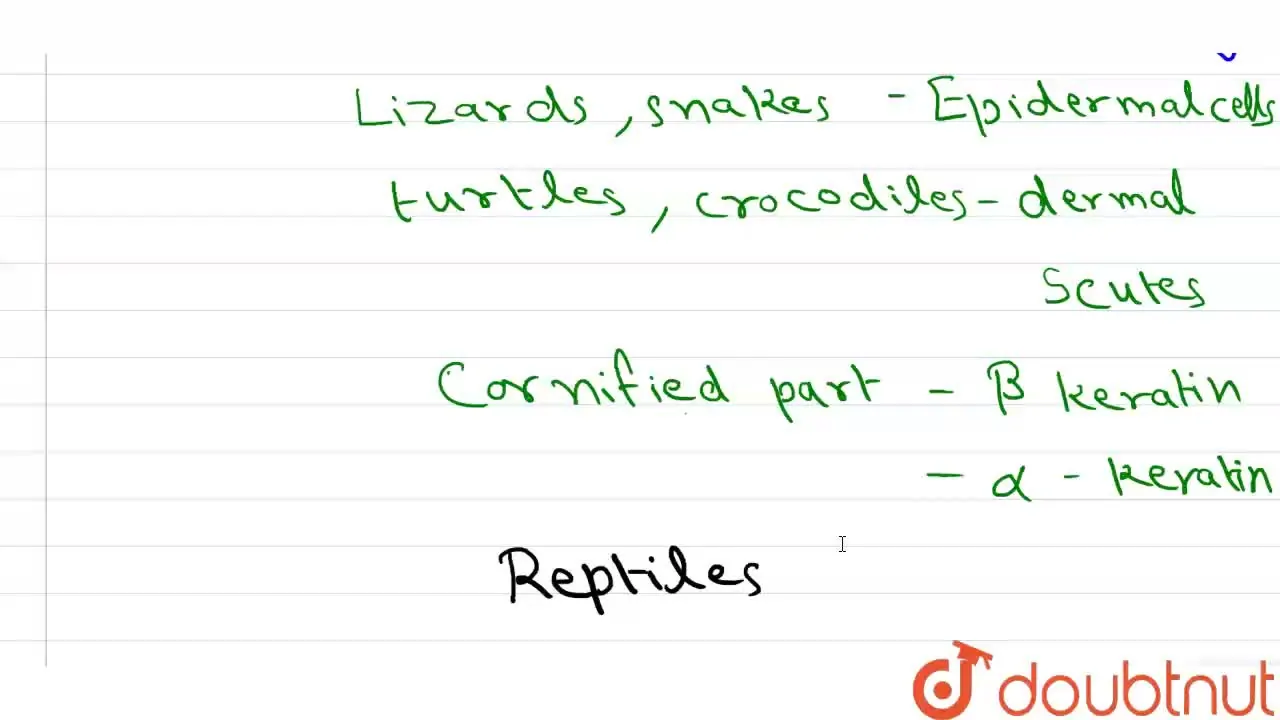 Lizards, snakes - Epidermal cells
turtles, crocodiles - dermal
Scutes
Cornified part - β keratin
- α - keratin
Reptiles
doubtnut